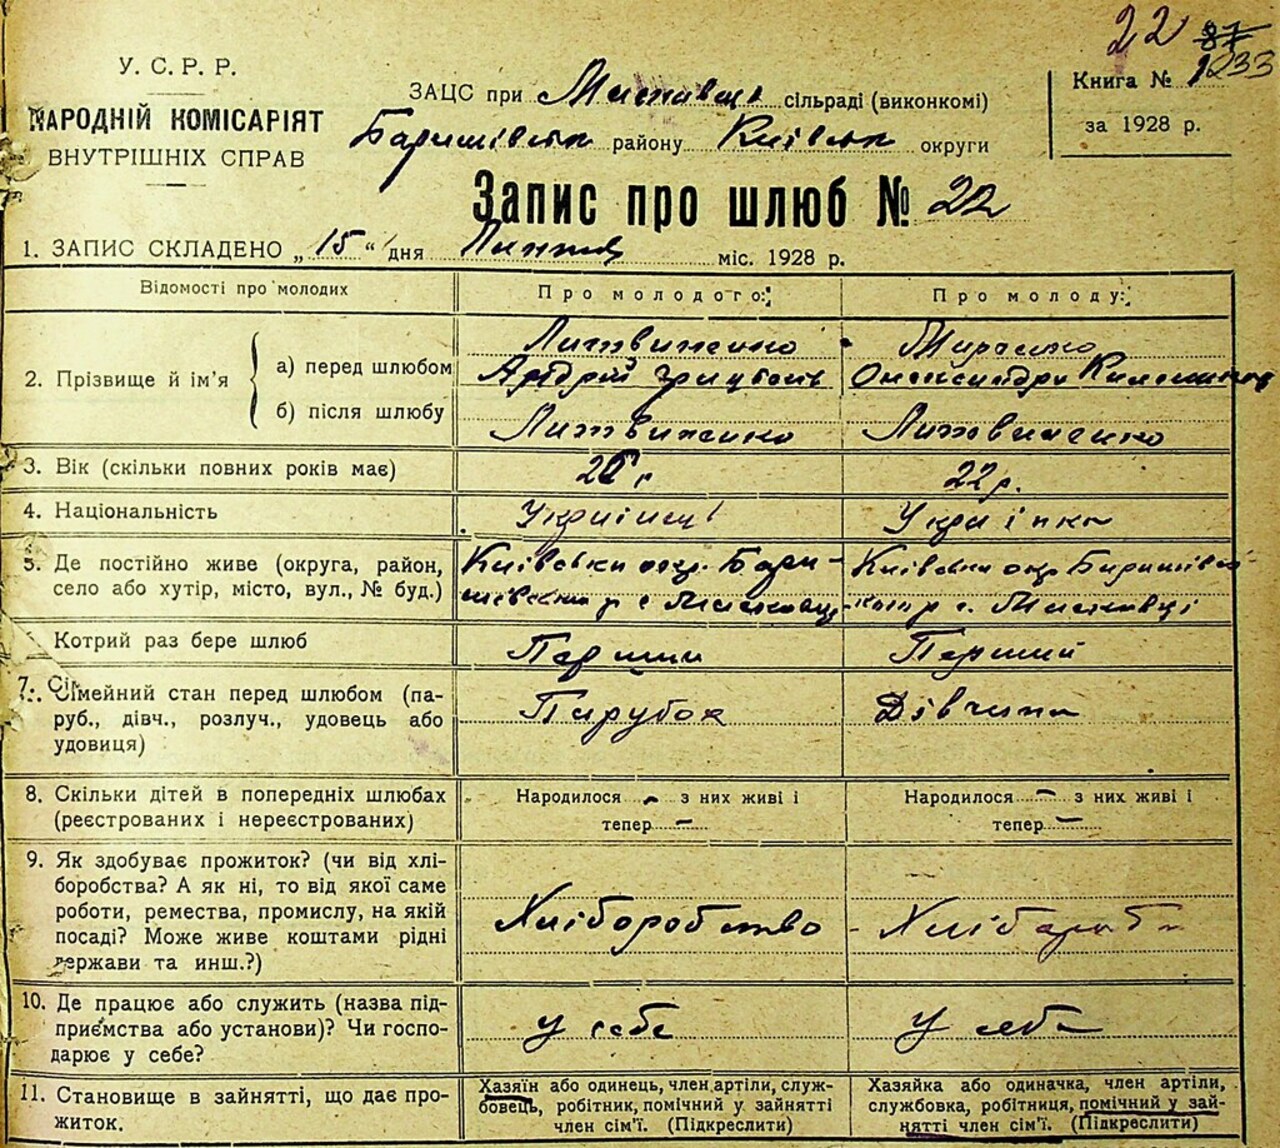 22 87
1233
У. С. Р. Р.
НАРОДНІЙ КОМІСАРІЯТ
ВНУТРІШНІХ СПРАВ
ЗАЦС при сільраді (виконкомі)
Баришівськ району Київськ округи
Книга №
за 1928 р.
Запис про шлюб № 22
1. ЗАПИС СКЛАДЕНО „ 15 “ дня міс. 1928 р.
Відомості про молодих
Про молодого:
Про молоду:
2. Прізвище й ім'я
а) перед шлюбом
Литвиненко
Андрій
Олександра
б) після шлюбу
Литвиненко
Литвиненко
3. Вік (скільки повних років має)
22 р.
4. Національність
Українець
Українка
5. Де постійно живе (округа, район,
село або хутір, місто, вул., № буд.)
Київська окр. Бари-
Київська окр. Баришівсь-
Котрий раз бере шлюб
Перший
Перший
7. Сімейний стан перед шлюбом (па-
руб., дівч., розлуч., удовець або
удовиця)
Парубок
Дівчина
8. Скільки дітей в попередніх шлюбах
(реєстрованих і нереєстрованих)
Народилося - з них живі і
тепер -
Народилося - з них живі і
тепер -
9. Як здобуває прожиток? (чи від хлі-
боробства? А як ні, то від якої саме
роботи, ремества, промислу, на якій
посаді? Може живе коштами рідні
держави та инш.?)
Хліборобство
10. Де працює або служить (назва під-
приємства або установи)? Чи госпо-
дарює у себе?
у себе
у себе
11. Становище в зайнятті, що дає про-
житок.
Хазяїн або одинець, член артіли, служ-
бовець, робітник, помічний у зайнятті
член сім'ї. (Підкреслити)
Хазяйка або одиначка, член артіли,
службовка, робітниця, помічний у зай-
нятті член сім'ї. (Підкреслити)